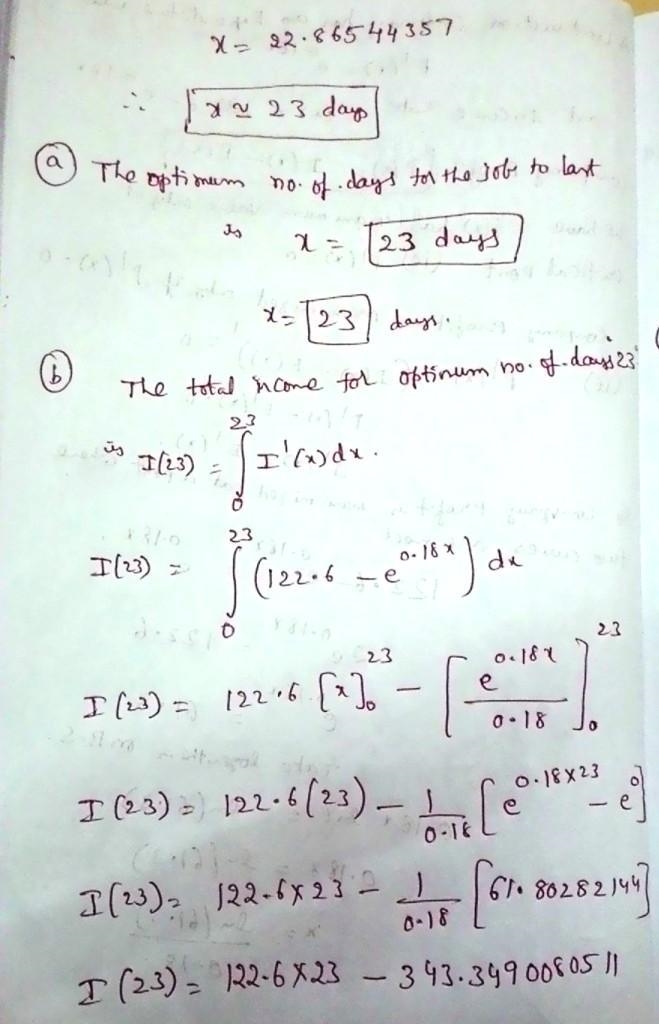 x = 22.86544357
∴ x ≃ 23 days
(a) The optimum no. of. days for the jobs to last
is x = 23 days
x = 23 days.
(b) The total income for optimum no. of. days 23
is I(23) = ∫₀²³ I'(x) dx.
I(23) = ∫₀²³ (122.6 - e^(0.18x)) dx
I(23) = 122.6 [x]₀²³ - [e^(0.18x) / 0.18]₀²³
I(23) = 122.6(23) - 1/0.18 [e^(0.18×23) - e^0]
I(23) = 122.6×23 - 1/0.18 [61.80282144]
I(23) = 122.6×23 - 343.3490080511